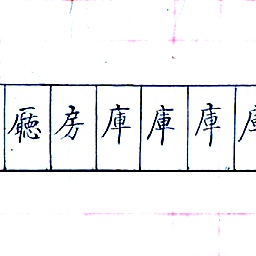 廳房庫庫庫